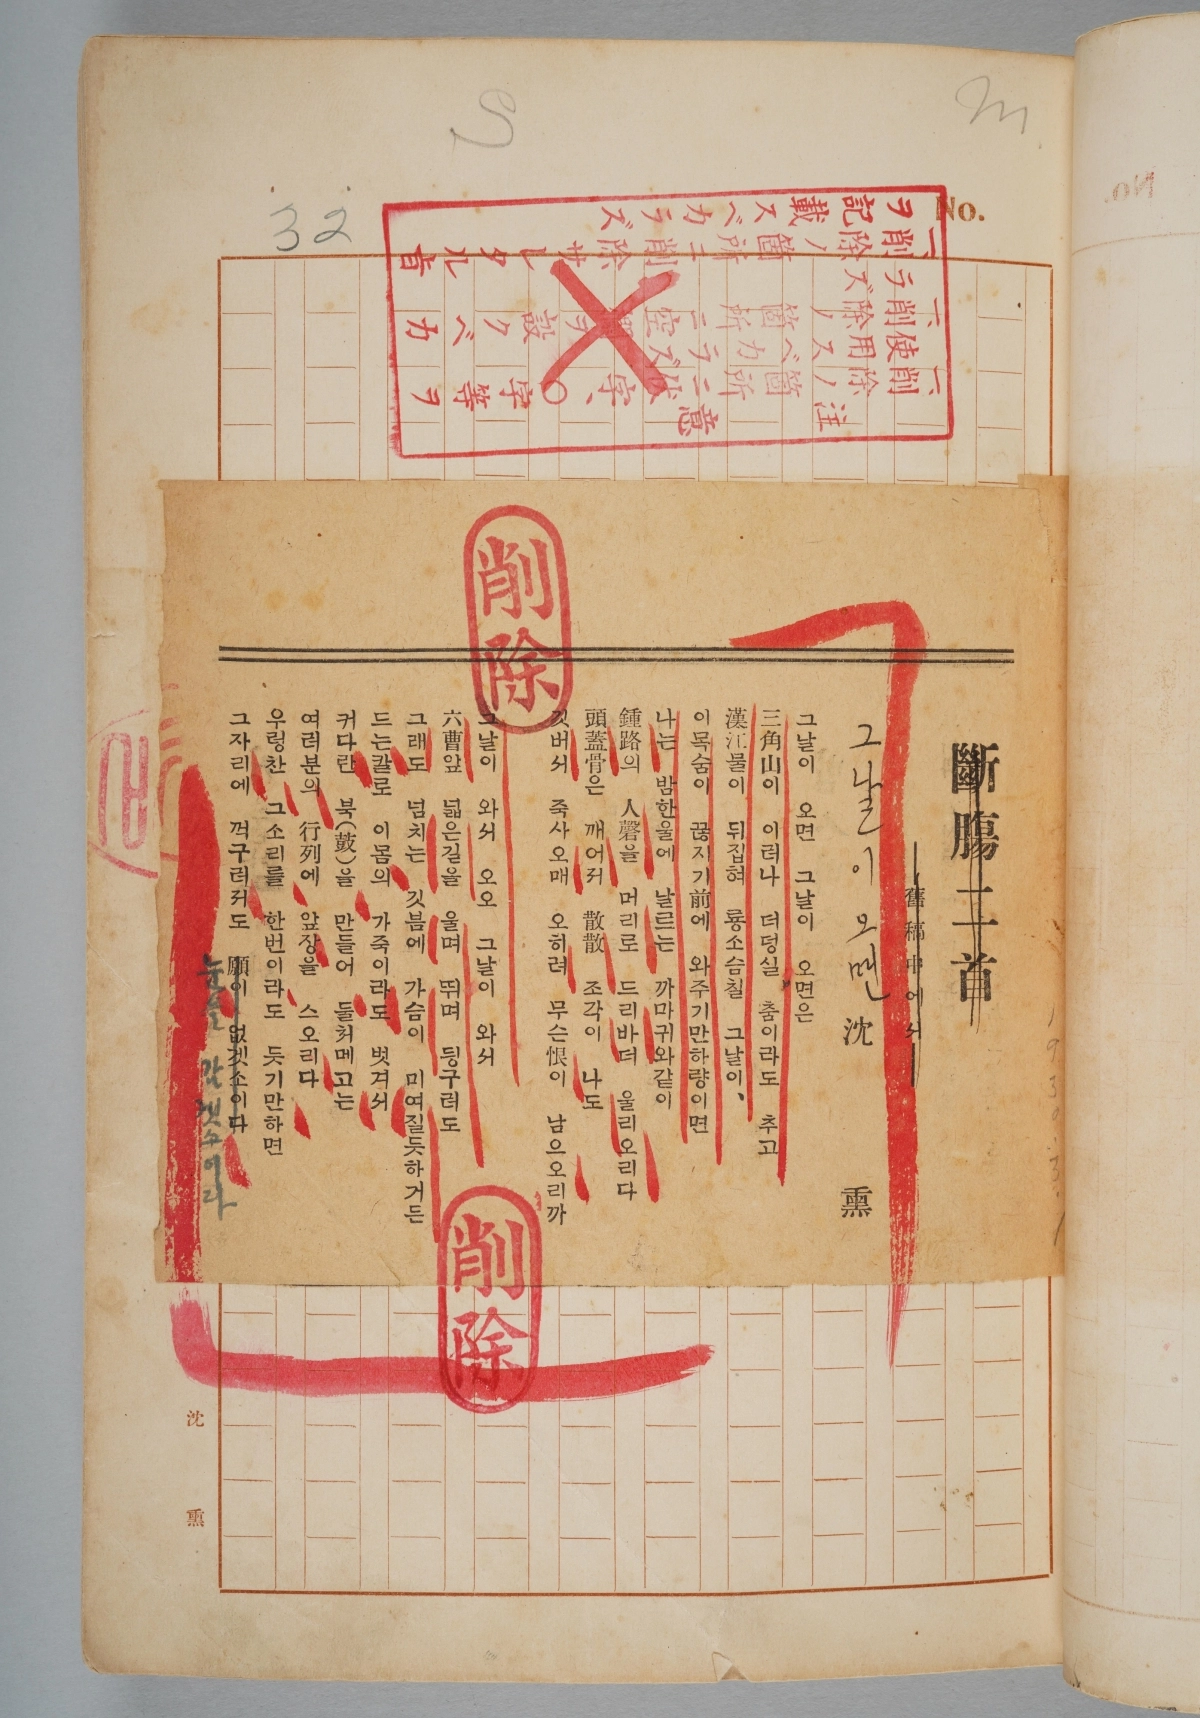 S
m
32
No.
注意
一、削除ノ箇所ニ伏字、〇字等ヲ
使用スベカラズ
一、削除ノ箇所ニ空欄ヲ設クベカ
ラズ
一、削除ノ箇所ニ削除サレタル旨
ヲ記載スベカラズ
削除
斷膓二首
舊稿中에서
그날이 오면 沈 熏
그날이 오면 그날이 오면은
三角山이 이러나 더덩실 춤이라도 추고
漢江물이 뒤집혀 룡소슴칠 그날이、
이목숨이 끊지기前에 와주기만하량이면
나는 밤한울에 날르는 까마귀와같이
鍾路의 人磬을 머리로 드리바더 울리오리다
頭蓋骨은 깨어저 散散 조각이 나도
깃버서 죽사오매 오히려 무슨恨이 남으오리까
그날이 와서 오오 그날이 와서
六曹앞 넓은길을 울며 뛰며 딍구러도
그래도 넘치는 깃븜에 가슴이 미여질듯하거든
드는칼로 이몸의 가죽이라도 벗겨서
커다란 북(鼓)을 만들어 들처메고는
여러분의 行列에 앞장을 스오리다
우렁찬 그소리를 한번이라도 듯기만하면
그자리에 꺽구러저도 願이없겟소이다
눈을 감겟소이다
削除
1930.3.1
沈 熏